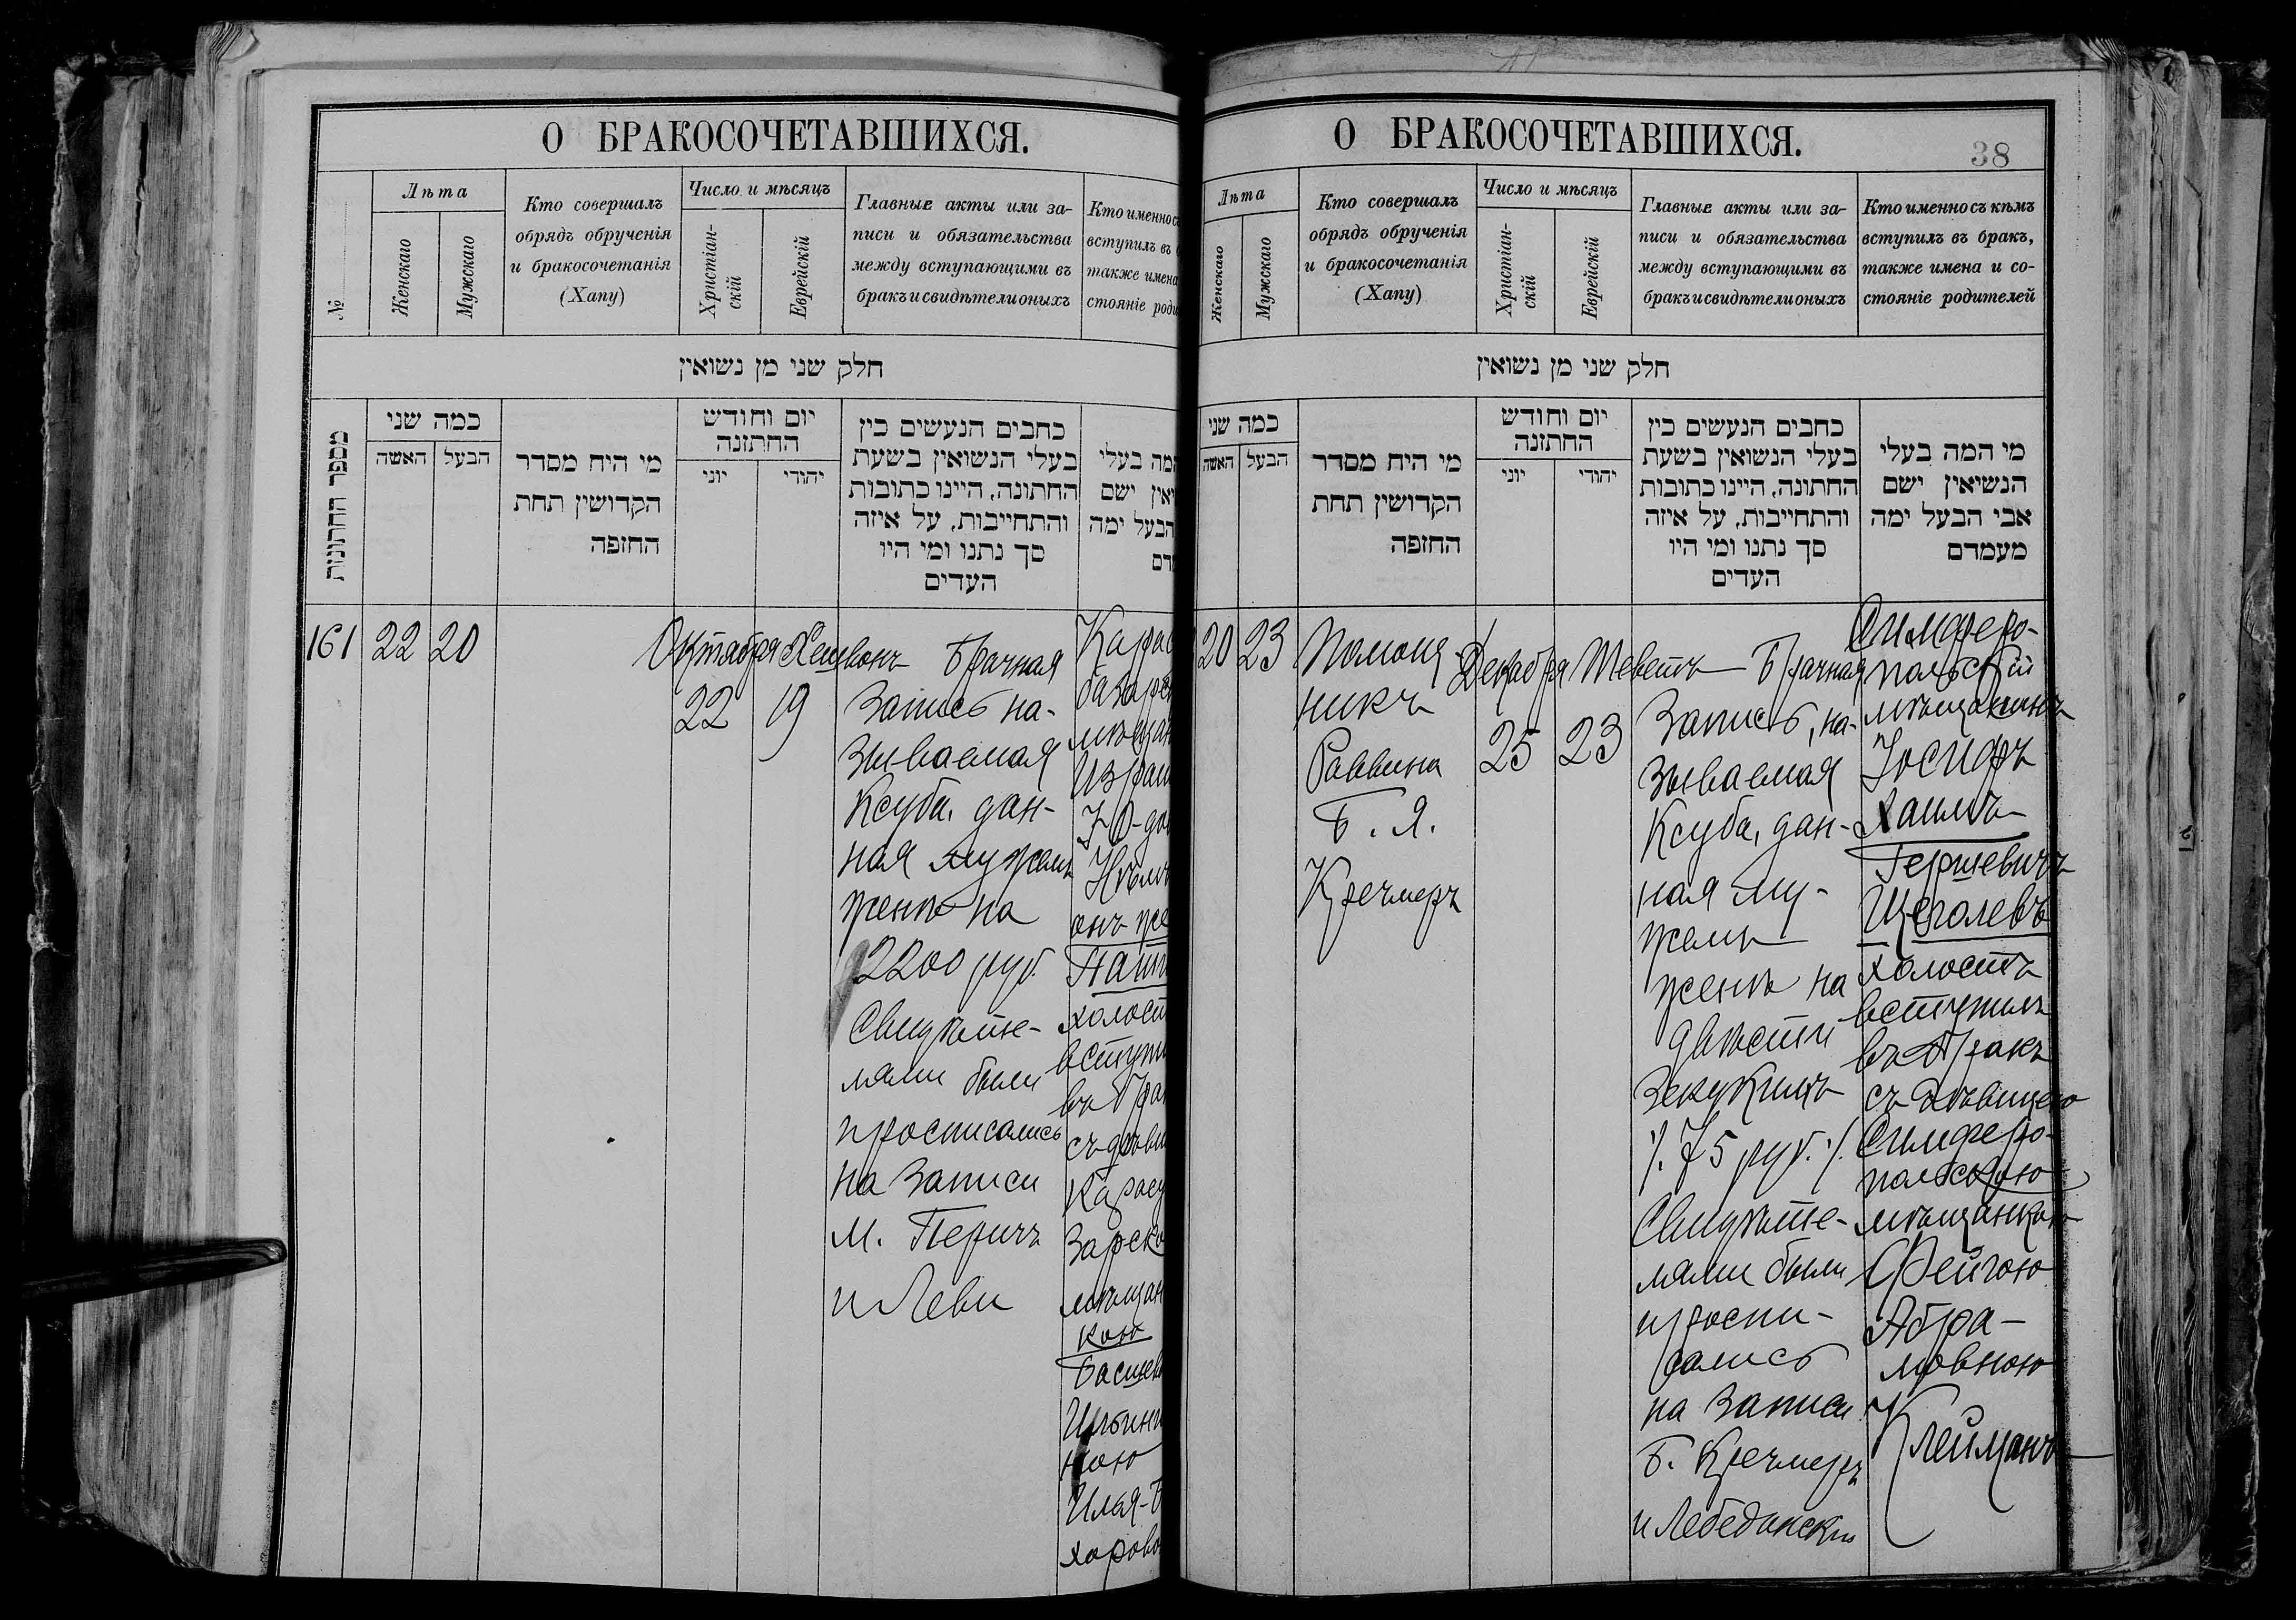 О БРАКОСОЧЕТАВШИХСЯ.
№
Лѣта
Женскаго
Мужскаго
Кто совершалъ
обрядъ обрученія
и бракосочетанія
(Хапу)
Число и мѣсяцъ
Христіан-
скій
Еврейскій
Главные акты или за-
писи и обязательства
между вступающими въ
бракъ и свидѣтели оныхъ
Кто именно съ
вступилъ въ
также имена
стояніе роди
חלק שני מן נשואין
מספר החתונות
כמה שני
האשה
הבעל
מי היה מסדר
הקדושין תחת
החופה
יום וחודש
החתונה
יוני
יהודי
כתבים הנעשים בין
בעלי הנשואין בשעת
החתונה, היינו כתובות
והתחייבות, על איזה
סך נתנו ומי היו
העדים
המה בעלי
ואין ישם
הבעל ימה
161
22
20
Октября
22
Хешвонъ
19
Брачная
Запись на-
зываемая
Ксуба, дан-
ная мужемъ
женѣ на
2200 руб.
Свидѣте-
лями были
и росписались
на записи
М. Перичъ
и Леви
Карас
базарск
мѣщан
Израи
Нѣм
онъ же
холост
вступи
въ бра
съ дѣви
Карасу
зарско
мѣщан
кою
Басшев
ною
Илая-Б
харово
О БРАКОСОЧЕТАВШИХСЯ.
38
Лѣта
Женскаго
Мужскаго
Кто совершалъ
обрядъ обрученія
и бракосочетанія
(Хапу)
Число и мѣсяцъ
Христіан-
скій
Еврейскій
Главные акты или за-
писи и обязательства
между вступающими въ
бракъ и свидѣтели оныхъ
Кто именно съ кѣмъ
вступилъ въ бракъ,
также имена и со-
стояніе родителей
חלק שני מן נשואין
כמה שני
האשה
הבעל
מי היה מסדר
הקדושין תחת
החופה
יום וחודש
החתונה
יוני
יהודי
כתבים הנעשים בין
בעלי הנשואין בשעת
החתונה, היינו כתובות
והתחייבות, על איזה
סך נתנו ומי היו
העדים
מי המה בעלי
הנשיאין ישם
אבי הבעל ימה
מעמדם
20
23
Помощ-
никъ
Раввина
Б. Я.
Кречмеръ
Декабря
25
Теветъ
23
Брачная
Запись, на-
зываемая
Ксуба, дан-
ная му-
жемъ
женѣ на
двѣсти
зекукимъ
/. 75 руб. /.
Свидѣте-
лями были
и роспи-
сались
на записи
Б. Кречмеръ
и Лебединскій
Симферо-
польскій
мѣщанинъ
Іосифъ
Хаимъ
Гершевичъ
Щеголевъ
холостъ
вступилъ
въ бракъ
съ дѣвицею
Симферо-
польскою
мѣщанкою
Фейгою
Абра-
мовною
Клейманъ